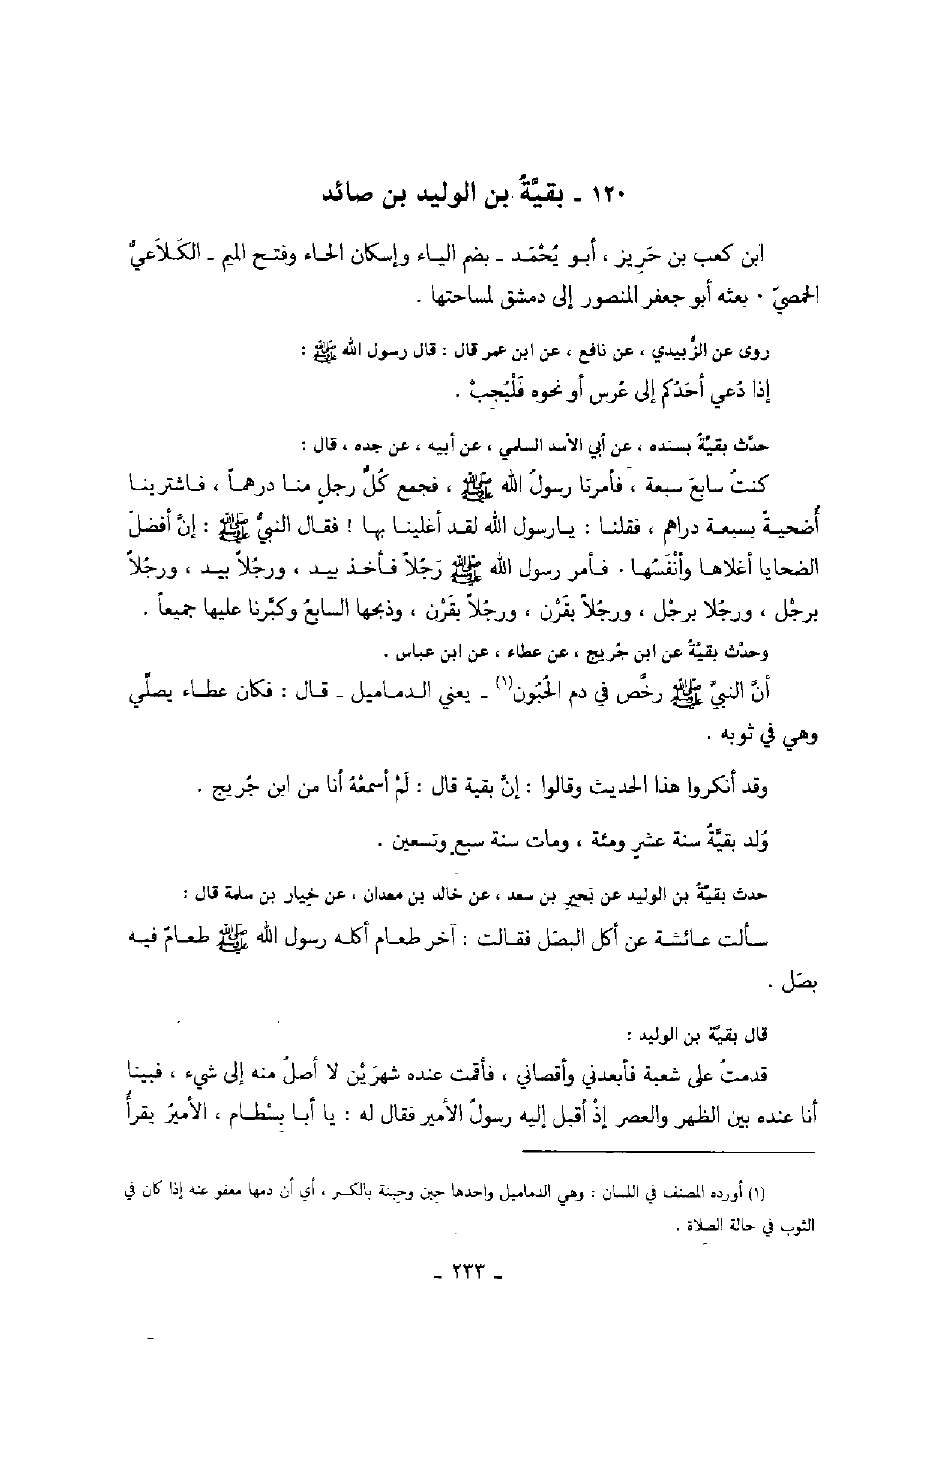 ١٢٠ ـ بقيَّةُ بن الوليد بن صائد
ابن كعب بن حَرِيز ، أبو يُحْمَد ـ بضم الياء وإسكان الحاء وفتح الميم ـ الكَلَاَعيُّ
الحمصيّ ٠ بعثه أبو جعفر المنصور إلى دمشق لمساحتها .
روى عن الزُّبيدي ، عن نافع ، عن ابن عمر قال : قال رسول الله ﷺ :
إذا دُعي أحَدُكم إلى عُرس أو نحوه فَلْيُجِبْ .
حدَّث بقيَّةُ بسنده ، عن أبي الأسد السلمي ، عن أبيه ، عن جده ، قال :
كنتُ سابعَ سبعة ، فأمرنا رسولُ الله ﷺ ، فجمع كُلُّ رجلٍ منا درهماً ، فاشترينا
أُضحيةً بسبعة دراهم ، فقلنا : يارسول الله لقد أغلينا بها ! فقال النبيُّ ﷺ : إنَّ أفضلَ
الضحايا أغلاها وأنْفَسُها ٠ فأمر رسول الله ﷺ رَجُلاً فأخذ بيد ، ورجُلاً بيد ، ورجُلاً
برجْل ، ورجُلا برجْل ، ورجُلاً بقَرْن ، ورجُلاً بقَرْن ، وذبحها السابعُ وكبَّرنا عليها جميعاً .
وحدَّث بقيَّةُ عن ابن جُريج ، عن عطاء ، عن ابن عباس .
أنَّ النبيَّ ﷺ رخَّص في دم الحُبُون(١) ـ يعني الدماميل ـ قال : فكان عطاء يصلّي
وهي في ثوبه .
وقد أنكروا هذا الحديث وقالوا : إنَّ بقية قال : لَمْ أسمعْهُ أنا من ابن جُريج .
وُلد بقيَّةُ سنة عشرٍ ومئة ، ومات سنة سبعٍ وتسعين .
حدث بقيَّةُ بن الوليد عن بَحيرِ بن سعد ، عن خالد بن معدان ، عن خيار بن سلمة قال :
سألت عائشة عن أكل البصَل فقالت : آخر طعام أكله رسول الله ﷺ طعامٌ فيه
بصَل .
قال بقيَّة بن الوليد :
قدمتُ على شعبة فأبعدني وأقصاني ، فأقمت عنده شهرَيْن لا أصلُ منه إلى شيء ، فبينا
أنا عنده بين الظهر والعصر إذْ أقبل إليه رسولُ الأمير فقال له : يا أبا بِسْطام ، الأميرُ يقرأُ
(١) أورده المصنف في اللسان : وهي الدماميل واحدها حبن وحبنة بالكسر ، أي أن دمها معفو عنه إذا كان في
الثوب في حالة الصلاة .
ـ ٢٣٣ ـ